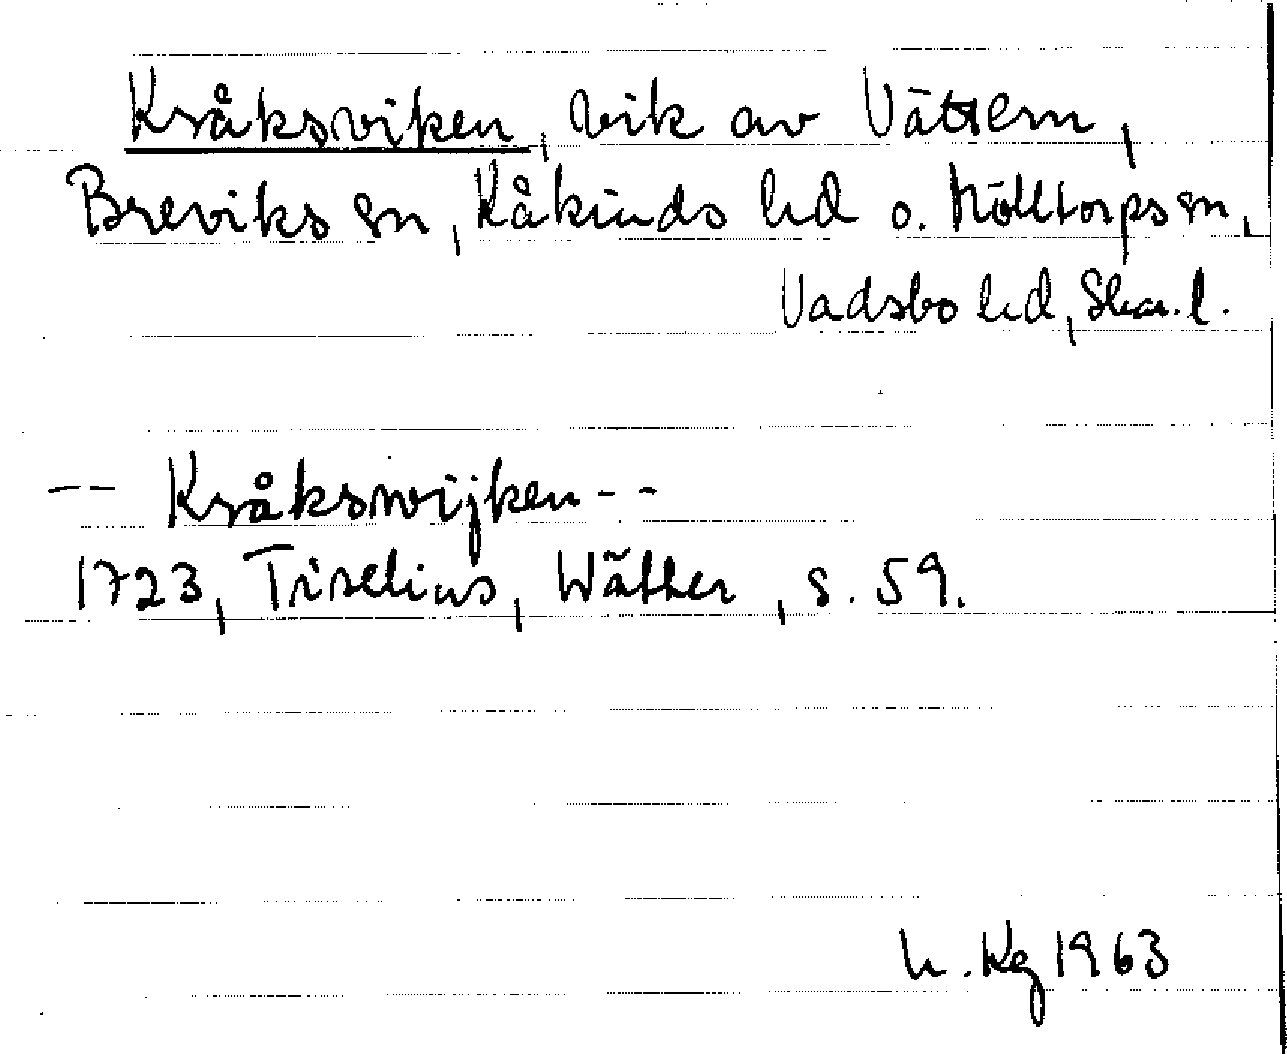 Kråksviken, vik av Vättern,
Breviks sn, Kåkinds hd o. Mölltorps sn,
Vadsbo hd, Skar. l.
-- Kråkswijken --
1723, Tiselius, Wätter, s. 59.
h. Kg 1963